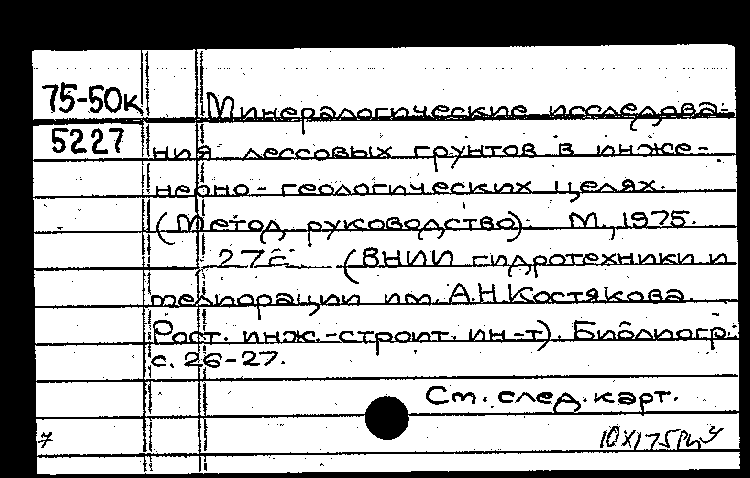 75-50к Минералогические исследова-
5227 ния лессовых грунтов в инже-
нерно-геологических целях.
(Метод. руководство). М., 1975.
27с. (ВНИИ гидротехники и
мелиорации им. А.Н.Костякова.
Рост. инж.-строит. ин-т). Библиогр.:
с. 26-27.
См. след. карт.
7
10 XI 75